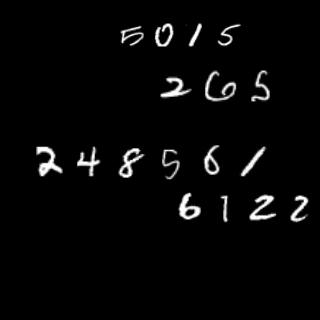 5015
265
248561
6122